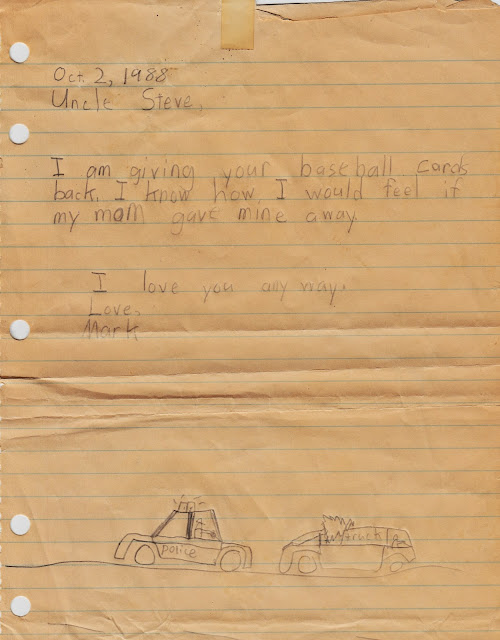 Oct. 2, 1988
Uncle Steve,
I am giving your baseball cards
back. I know how I would feel if
my mom gave mine away.
I love you any way.
Love,
Mark
Police
truck